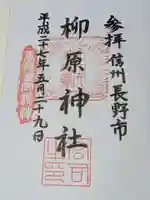 参拝 信州長野市
柳原神社
平成二十七年五月二十九日